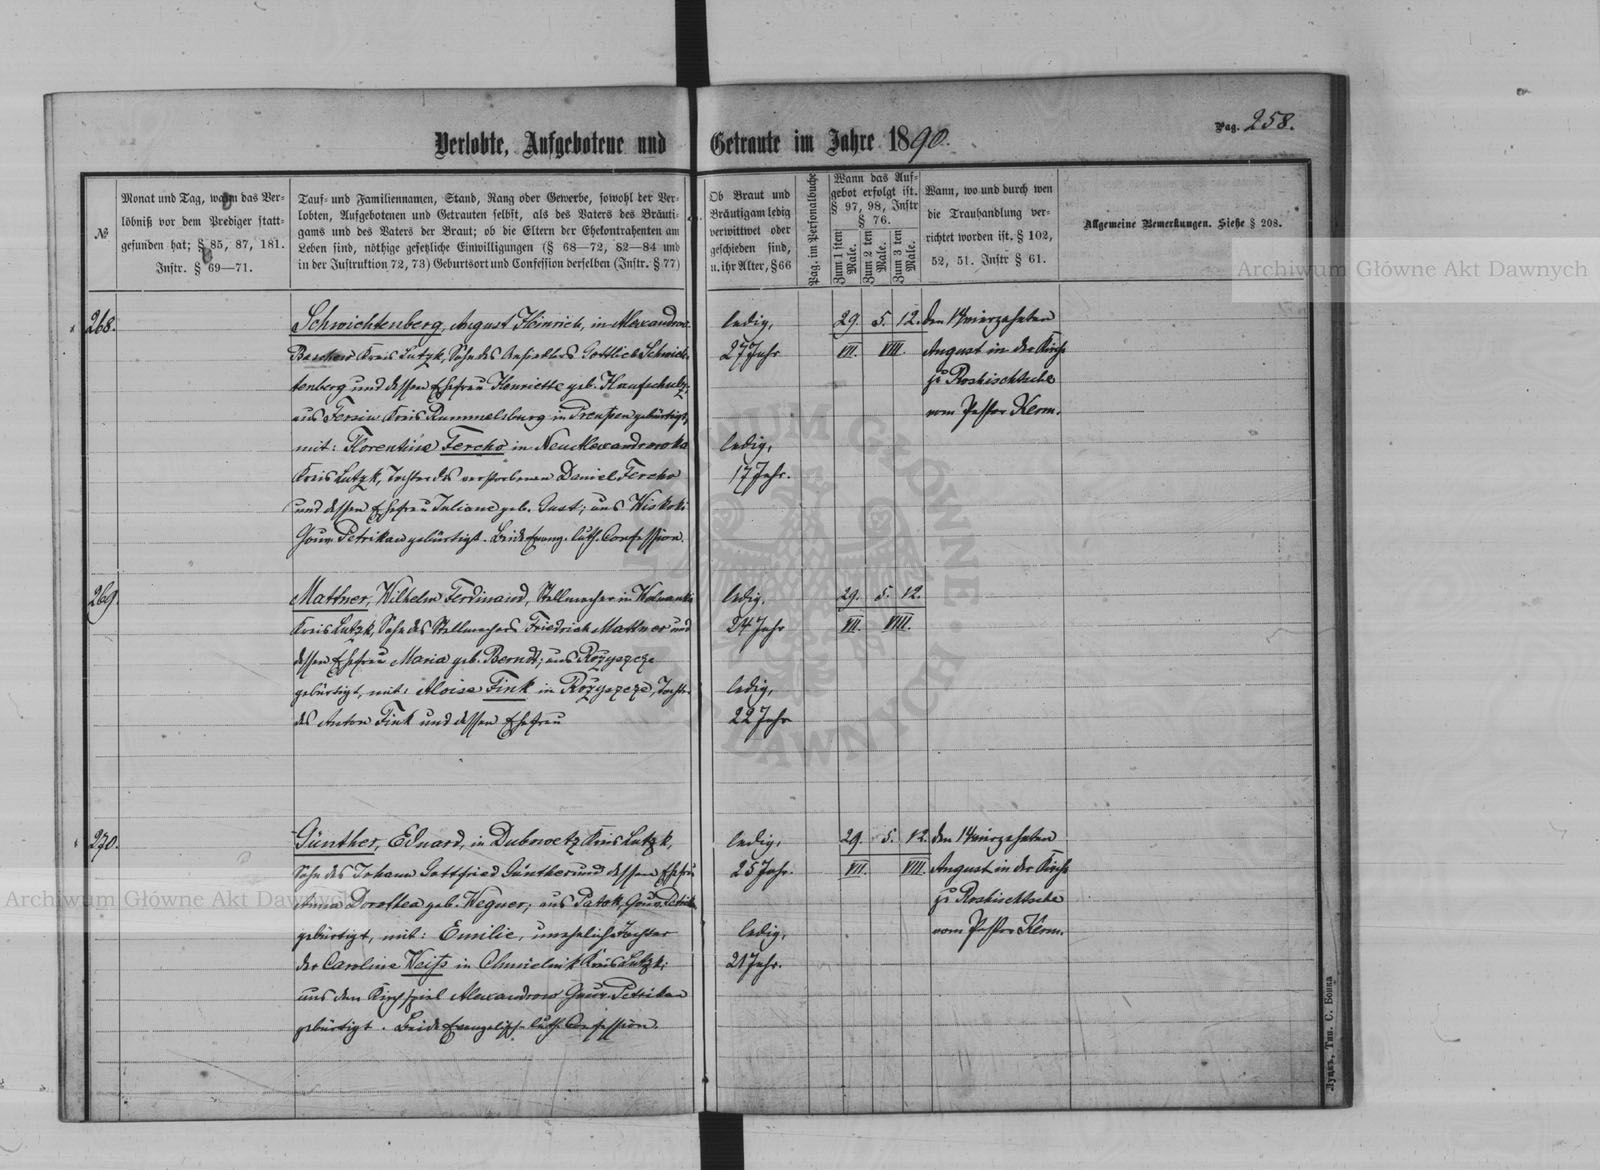 Verlobte, Aufgebotene und Getraute im Jahre 1890.
Pag. 258.
№
Monat und Tag, wann das Ver-
löbniß vor dem Prediger statt-
gefunden hat; § 85, 87, 181.
Instr. § 69—71.
Tauf- und Familiennamen, Stand, Rang oder Gewerbe, sowohl der Ver-
lobten, Aufgebotenen und Getrauten selbst, als des Vaters des Bräuti-
gams und des Vaters der Braut; ob die Eltern der Ehekontrahenten am
Leben sind, nöthige gesetzliche Einwilligungen (§ 68—72, 82—84 und
in der Instruktion 72, 73) Geburtsort und Confession derselben (Instr. § 77)
Ob Braut und
Bräutigam ledig
verwittwet oder
geschieden sind,
u. ihr Alter, § 66
Pag. im Personalbuche
Wann das Auf-
gebot erfolgt ist.
§ 97, 98, Instr
§ 76.
Zum 1 sten Male.
Zum 2 ten Male.
Zum 3 ten Male.
Wann, wo und durch wen
die Trauhandlung ver-
richtet worden ist. § 102,
52, 51. Instr § 61.
Allgemeine Bemerkungen. Siehe § 208.
268.
Schwichtenberg, August Heinrich, in Alexandrow
Kreis Lutzk, Sohn des Ansiedlers Gottlieb Schwich-
tenberg und dessen Ehefrau Henriette geb.
aus Kreis Rummelsburg in Preußen gebürtigt,
mit: Florentine Fercho in Neu Alexandrowka
Kreis Lutzk, Tochter des verstorbenen Daniel Fercho
und dessen Ehefrau Juliane geb. Gust; aus Wiskoki
Gouv. Petrikau gebürtigt. Beide Evang. luth. Confession.
ledig,
27 Jahr
ledig,
17 Jahr.
29. 5. 12.
VII. VIII.
den 14 vierzehnten
August in der Kirche
zu Roshischtsche
vom Pastor Kerm.
269.
Mattner, Wilhelm Ferdinand, Stellmacher in
Kreis Lutzk, Sohn des Stellmachers Friedrich Mattner und
dessen Ehefrau Maria geb. Berndt; aus Rożyszcze
gebürtigt, mit: Aloise Fink in Rożyszcze, Tochter
des Anton Fink und dessen Ehefrau
ledig.
24 Jahr
ledig,
22 Jahr
29. 5. 12.
VII. VIII.
270.
Günther, Eduard, in Dubowetz Kreis Lutzk,
Sohn des Johann Gottfried Günther und dessen Ehefrau
Anna Dorothea geb. Wegner; aus Patok, Gouv. Petrikau
gebürtigt, mit: Emilie, uneheliche Tochter
der Caroline Weiß in Chmielnik Kreis Lutzk;
aus dem Kirchspiel Alexandrow Gouv. Petrikau
gebürtigt. Beide Evangelisch luth. Confession.
ledig,
25 Jahr.
ledig,
21 Jahr.
29. 5. 12.
VII. VIII.
den 14 vierzehnten
August in der Kirche
zu Roshischtsche
vom Pastor Kerm.
Луцкъ, Тип. С. Бонка
Archiwum Główne Akt Dawnych
Archiwum Główne Akt Dawnych